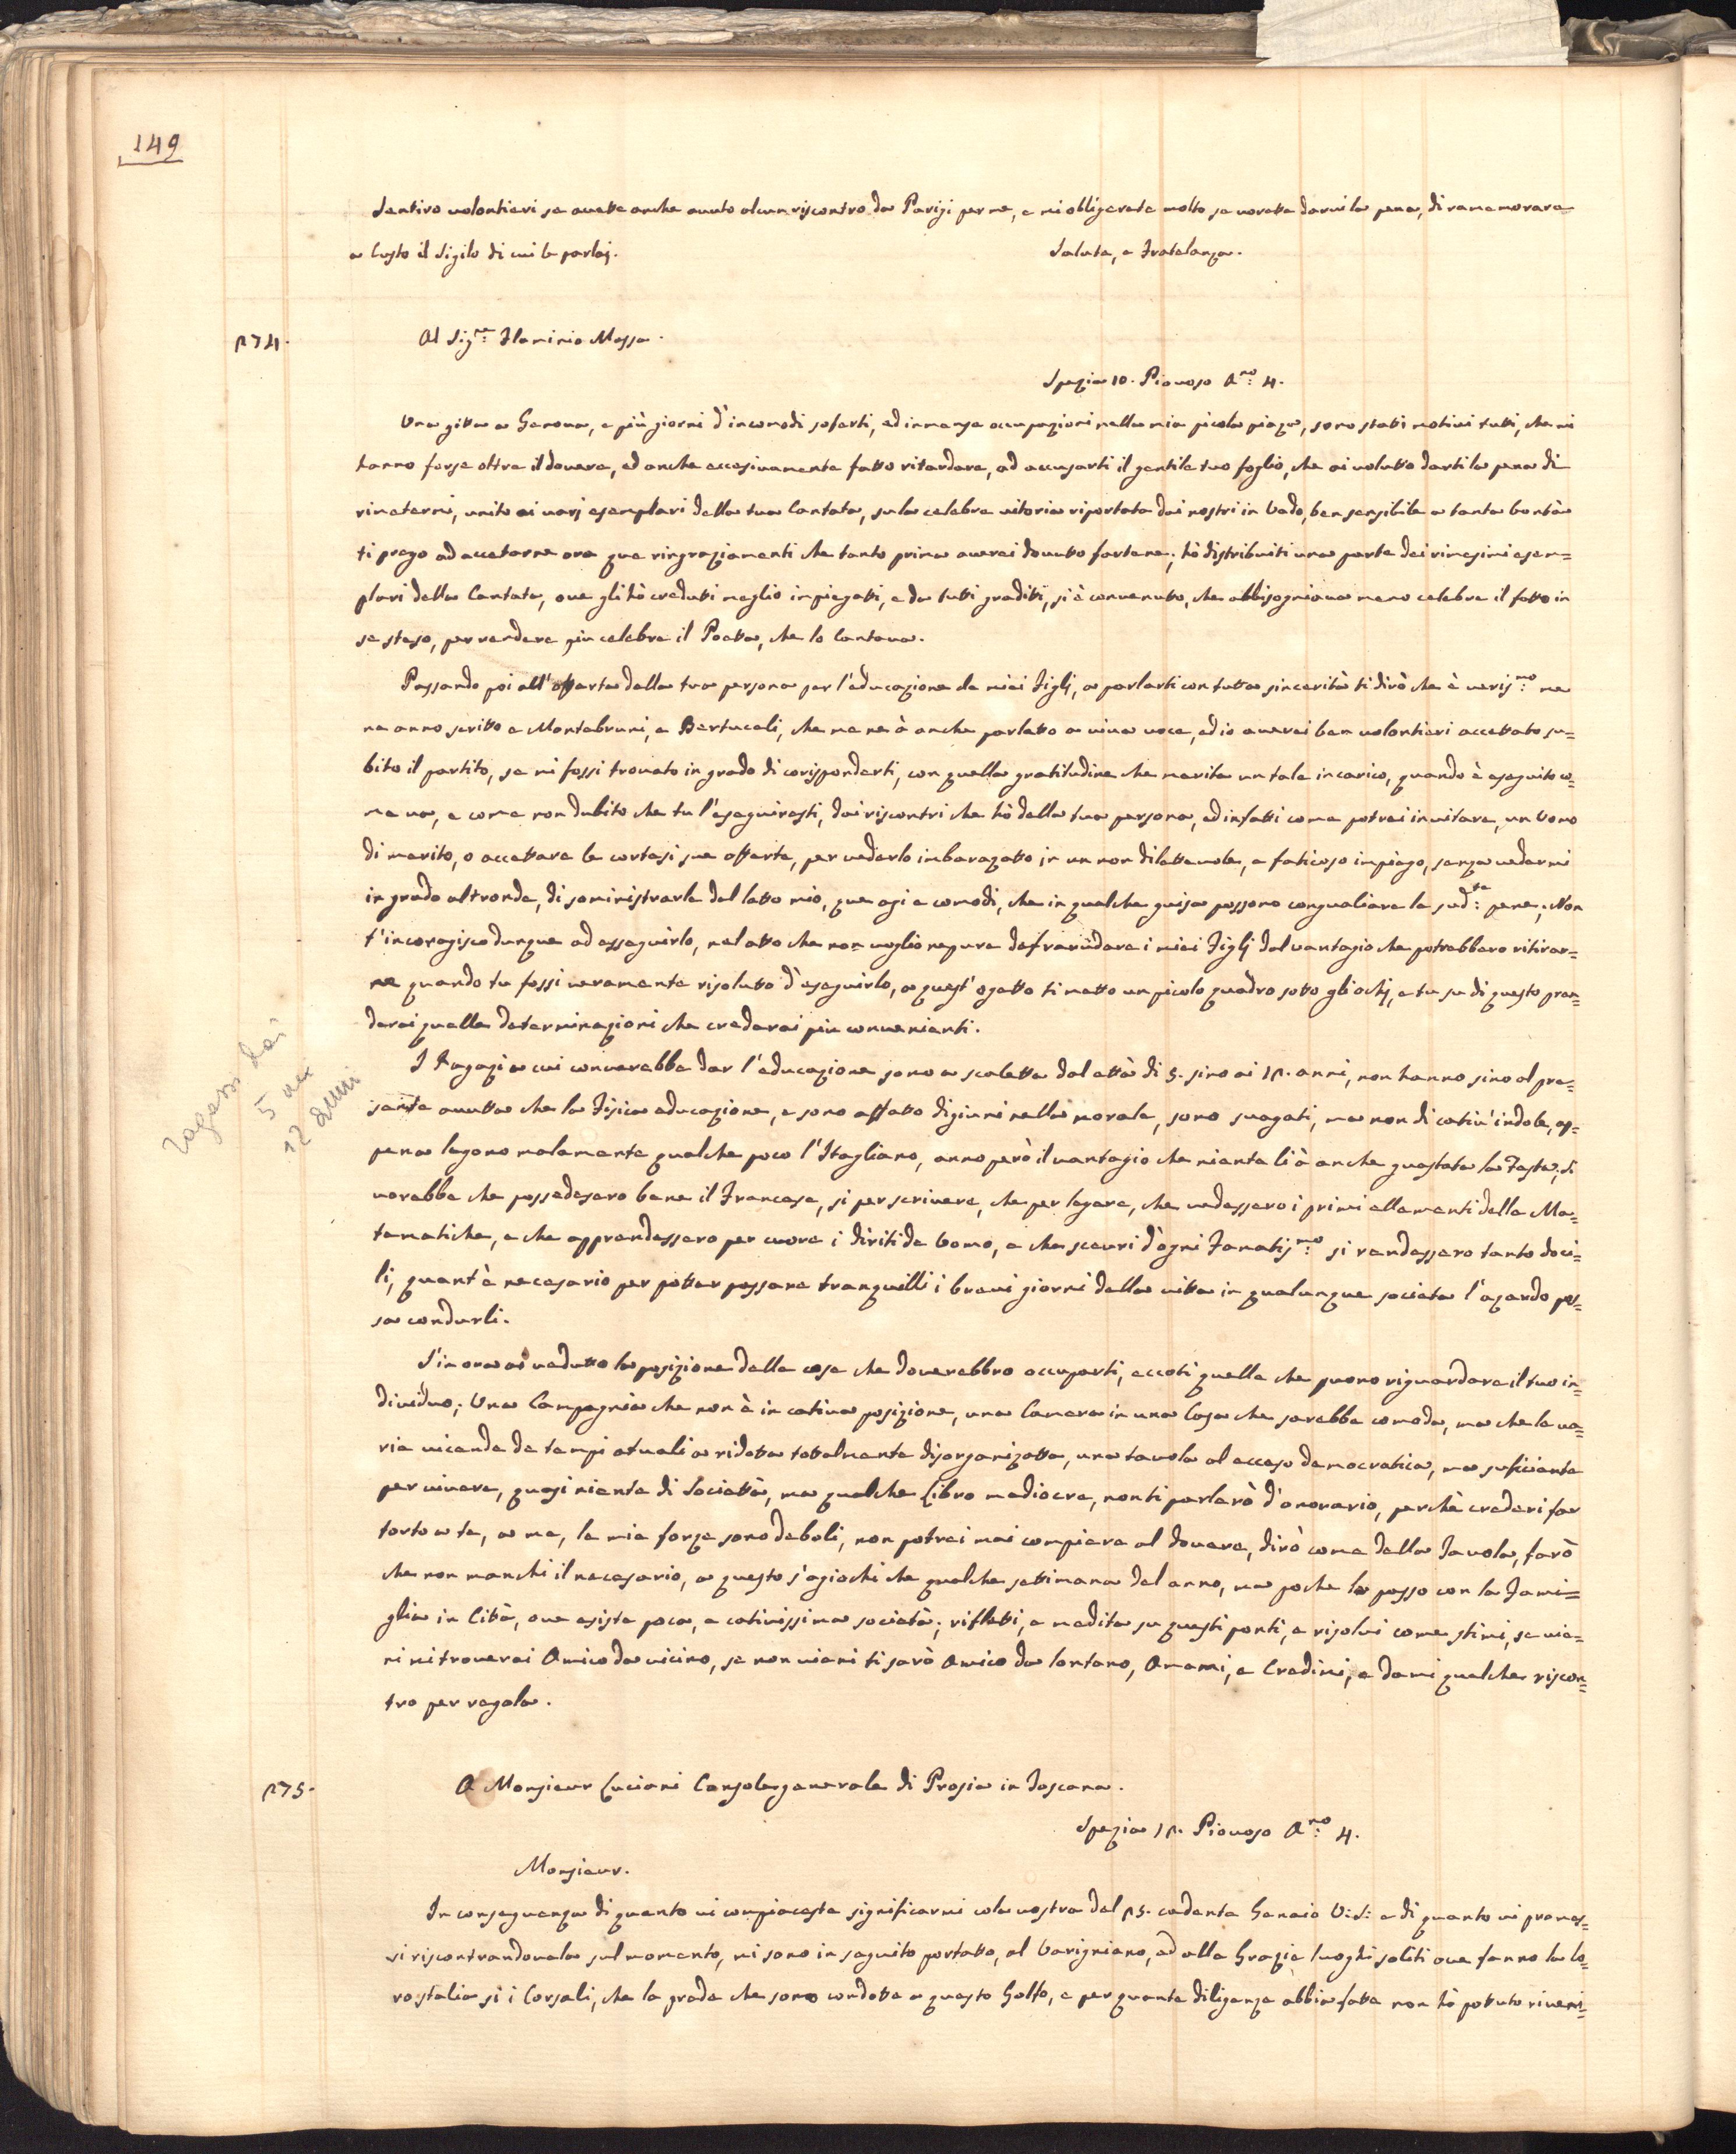 149
Sentiro volontieri se avette anche avuto alcun riscontro da Parigi per me, e mi obligerete molto se vorette darvi la pena, di ramemorare
a Custo il Sigilo di cui le parlai.
Salute, e Fratelanza.
274.
Al Sig.re Flaminio Massa.
Spezia 10. Piovoso A.no 4.
Una gitta a Genova, e più giorni d'incomodi soferti, ed immense occupazioni nella mia picola piaza, sono stati motivi tutti, che mi
hanno forse oltre il dovere, ed anche eccesivamente fatto ritardare, ad accusarti il gentile tuo foglio, che ai volutto darti la pena di
rimetermi, unito ai varj esemplari della tua Cantata, sula celebre vitoria riportata dai nostri in Vado, ben sensibile a tanta bontà
ti prego ad accetarne ora que ringraziamenti che tanto prima averei dovutto fartene; hò distribuiti una parte dei rimesimi esem=
plari della Cantata, ove gli hò creduti meglio impiegatti, e da tutti graditti, si è convenutto, che abbisogniava meno celebre il fatto in
se steso, per rendere più celebre il Poetta, che lo Cantava.
Passando poi all'offerta della tua persona per l'educazione de miei Figlj, a parlarti con tutta sincerità ti dirò che è veris.mo me
ne anno scritto e Montebruni, e Bertuceli, che me ne à anche parlatto a viva voce, ed io averei ben volontieri accettato su=
bito il partito, se mi fossi trovato in grado di corisponderti, con quella gratitudine che merita un tale incarico, quando è eseguito co=
me va, e come non dubito che tu l'eseguiresti, dai riscontri che hò della tua persona, ed infatti come potrei invitare, un Uomo
di merito, o accettare le cortesi sue offerte, per vederlo imbarazatto in un non dilettevole, e faticoso impiego, senza vedermi
in grado altronde, di soministrarle dal latto mio, que agi e comodi, che in qualche guisa possono congualiare le sud.te pene; Non
t'incoragisco dunque ad esseguirlo, nel atto che non voglio nepure defraudare i miei Figlj dal vantagio che potrebbero ritirar=
ne quando tu fossi veramente risolutto d'eseguirlo, a quest'ogetto ti metto un picolo quadro sotto gli ochj, e tu su di questo pren=
derai quelle determinazioni che crederai più convenienti.
I Ragazi a cui converebbe dar l'educazione sono a scaletta dal ettà di 5. sino ai 12. anni, non hanno sino al pre=
sente avutta che la Fisica educazione, e sono affatto digiuni nella morale, sono svagati, ma non di cativ'indole, ap=
pena legono malamente qualche poco l'Itagliano, anno però il vantagio che niente li à anche guastata la Testa; Si
vorebbe che possedesero bene il Francese, si per scrivere, che per legere, che vedessero i primi ellementi delle Ma=
tematiche, e che apprendessero per cuore i diriti de Uomo, e che scevri d'ogni Fanatis.mo si rendessero tanto doci=
li, quant'è necesario per potter passare tranquilli i brevi giorni della vitta in qualunque societa l'azardo pos=
sa condurli.
ragazzi dai
5 ai
12 anni
S'in ora ai vedutto la posizione delle cose che doverebbro occuparti, eccoti quelle che puono riguardare il tuo in=
dividuo; Una Campagnia che non è in cativa posizione, una Camera in una Casa che sarebbe comoda, ma che le va=
rie vicende de tempi atuali a ridotta tottalmente disorganizatta, una tavola al ecceso democratica, ma suficiente
per vivere, quasi niente di Società, ma qualche Libro mediocre, non ti parlerò d'onorario, perchè crederi far
torto a te, a me, le mie forze sono deboli, non potrei mai compiere al dovere, dirò come della Tavola, farò
che non manchi il necesario, a questo s'agiochi che qualche settimana del anno, ma poche le passo con la Fami=
glia in Cità, ove esiste poca, e cativissima società; rifletti, e medita su questi ponti, e risolvi come stimi, se vie=
ni mi troverai Amico da vicino, se non vieni ti sarò Amico da lontano, Amami, e Credimi, e dami qualche riscon=
tro per regola.
275.
A Monsieur Luciani Consolegenerale di Prosia in Toscana.
Spezia 12. Piovoso A.no 4.
Monsieur.
In conseguenza di quanto vi compiaceste significarmi cola vostra del 25. cadente Genaio V: S: e di quanto vi promes=
si riscontrandovela sul momento, mi sono in seguito portatto, al Varigniano, ed alle Grazie luoghi soliti ove fanno la lo=
ro stalia si i Corsali, che le prede che sono condotte a questo Golfo, e per quante diligenze abbia fatte non hò pottuto riveni=